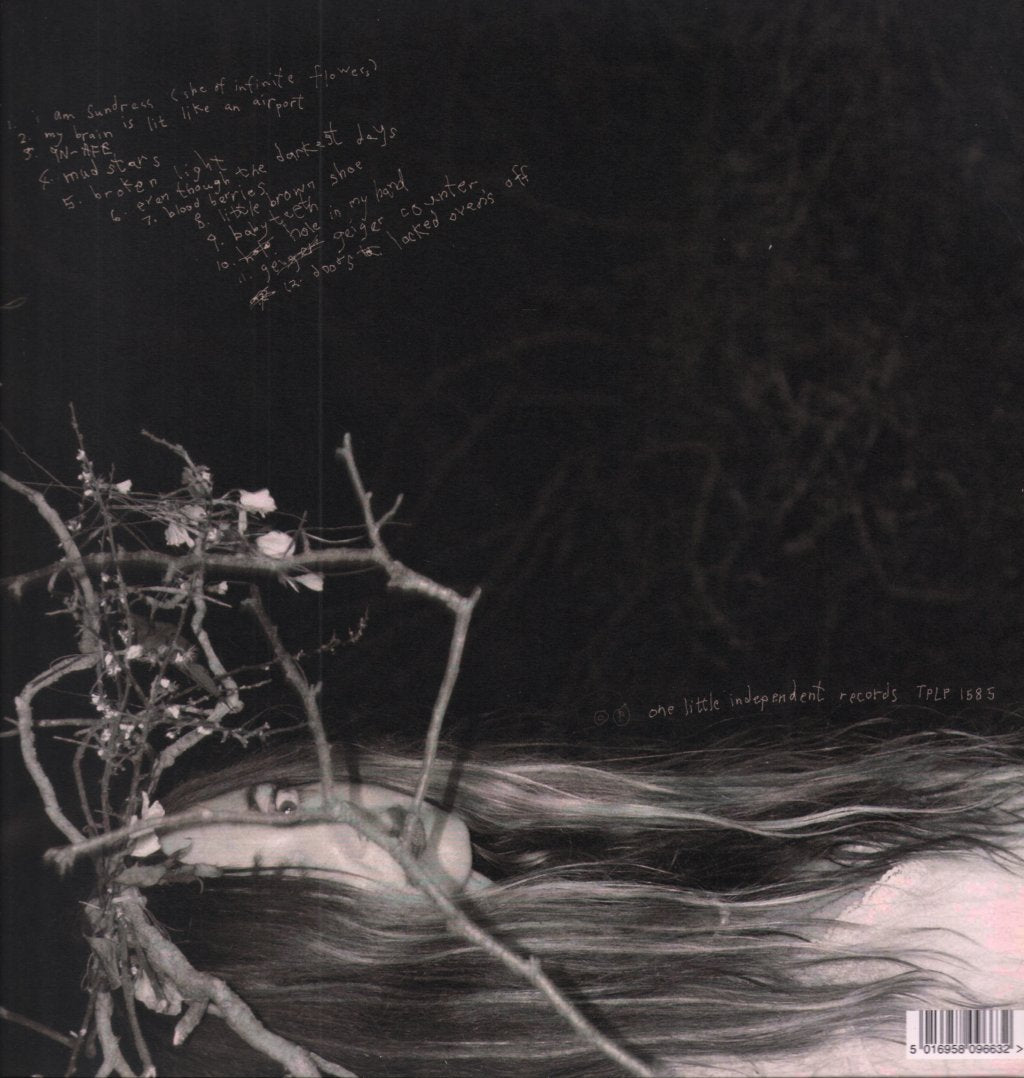 1. i am sundress (she of infinite flowers)
2. my brain is lit like an airport
3. IN-AFE
4. mud stars
5. broken light
6. even though the darkest days
7. blood berries
8. little brown shoe
9. baby teeth
10. hole in my hand
11. geiger geiger counter
12. doors locked ovens off
© Ⓟ one little independent records TPLP 1585
5 016958 096632 >